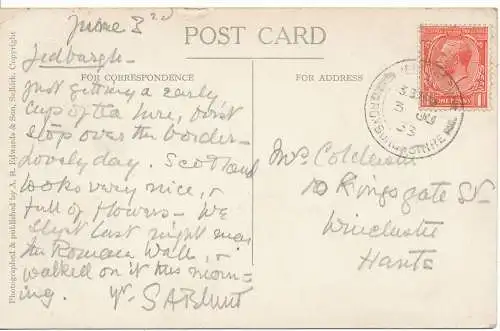 June 3rd
POST CARD
Jedburgh -
FOR CORRESPONDENCE
FOR ADDRESS
Just getting a early
cup of tea here, don't
stop over the border -
Lovely day. Scotland
looks very nice, &
full of flowers - We
slept last night near
the Roman Wall, &
walked on it this morn-
ing. yr. S A Blunt
Mrs Colchester
10 Kingsgate St
Winchester
Hants
Photographed & published by A. R. Edwards & Son, Selkirk. Copyright
ONE PENNY
3 JU
33
ROXBURGHSHIRE